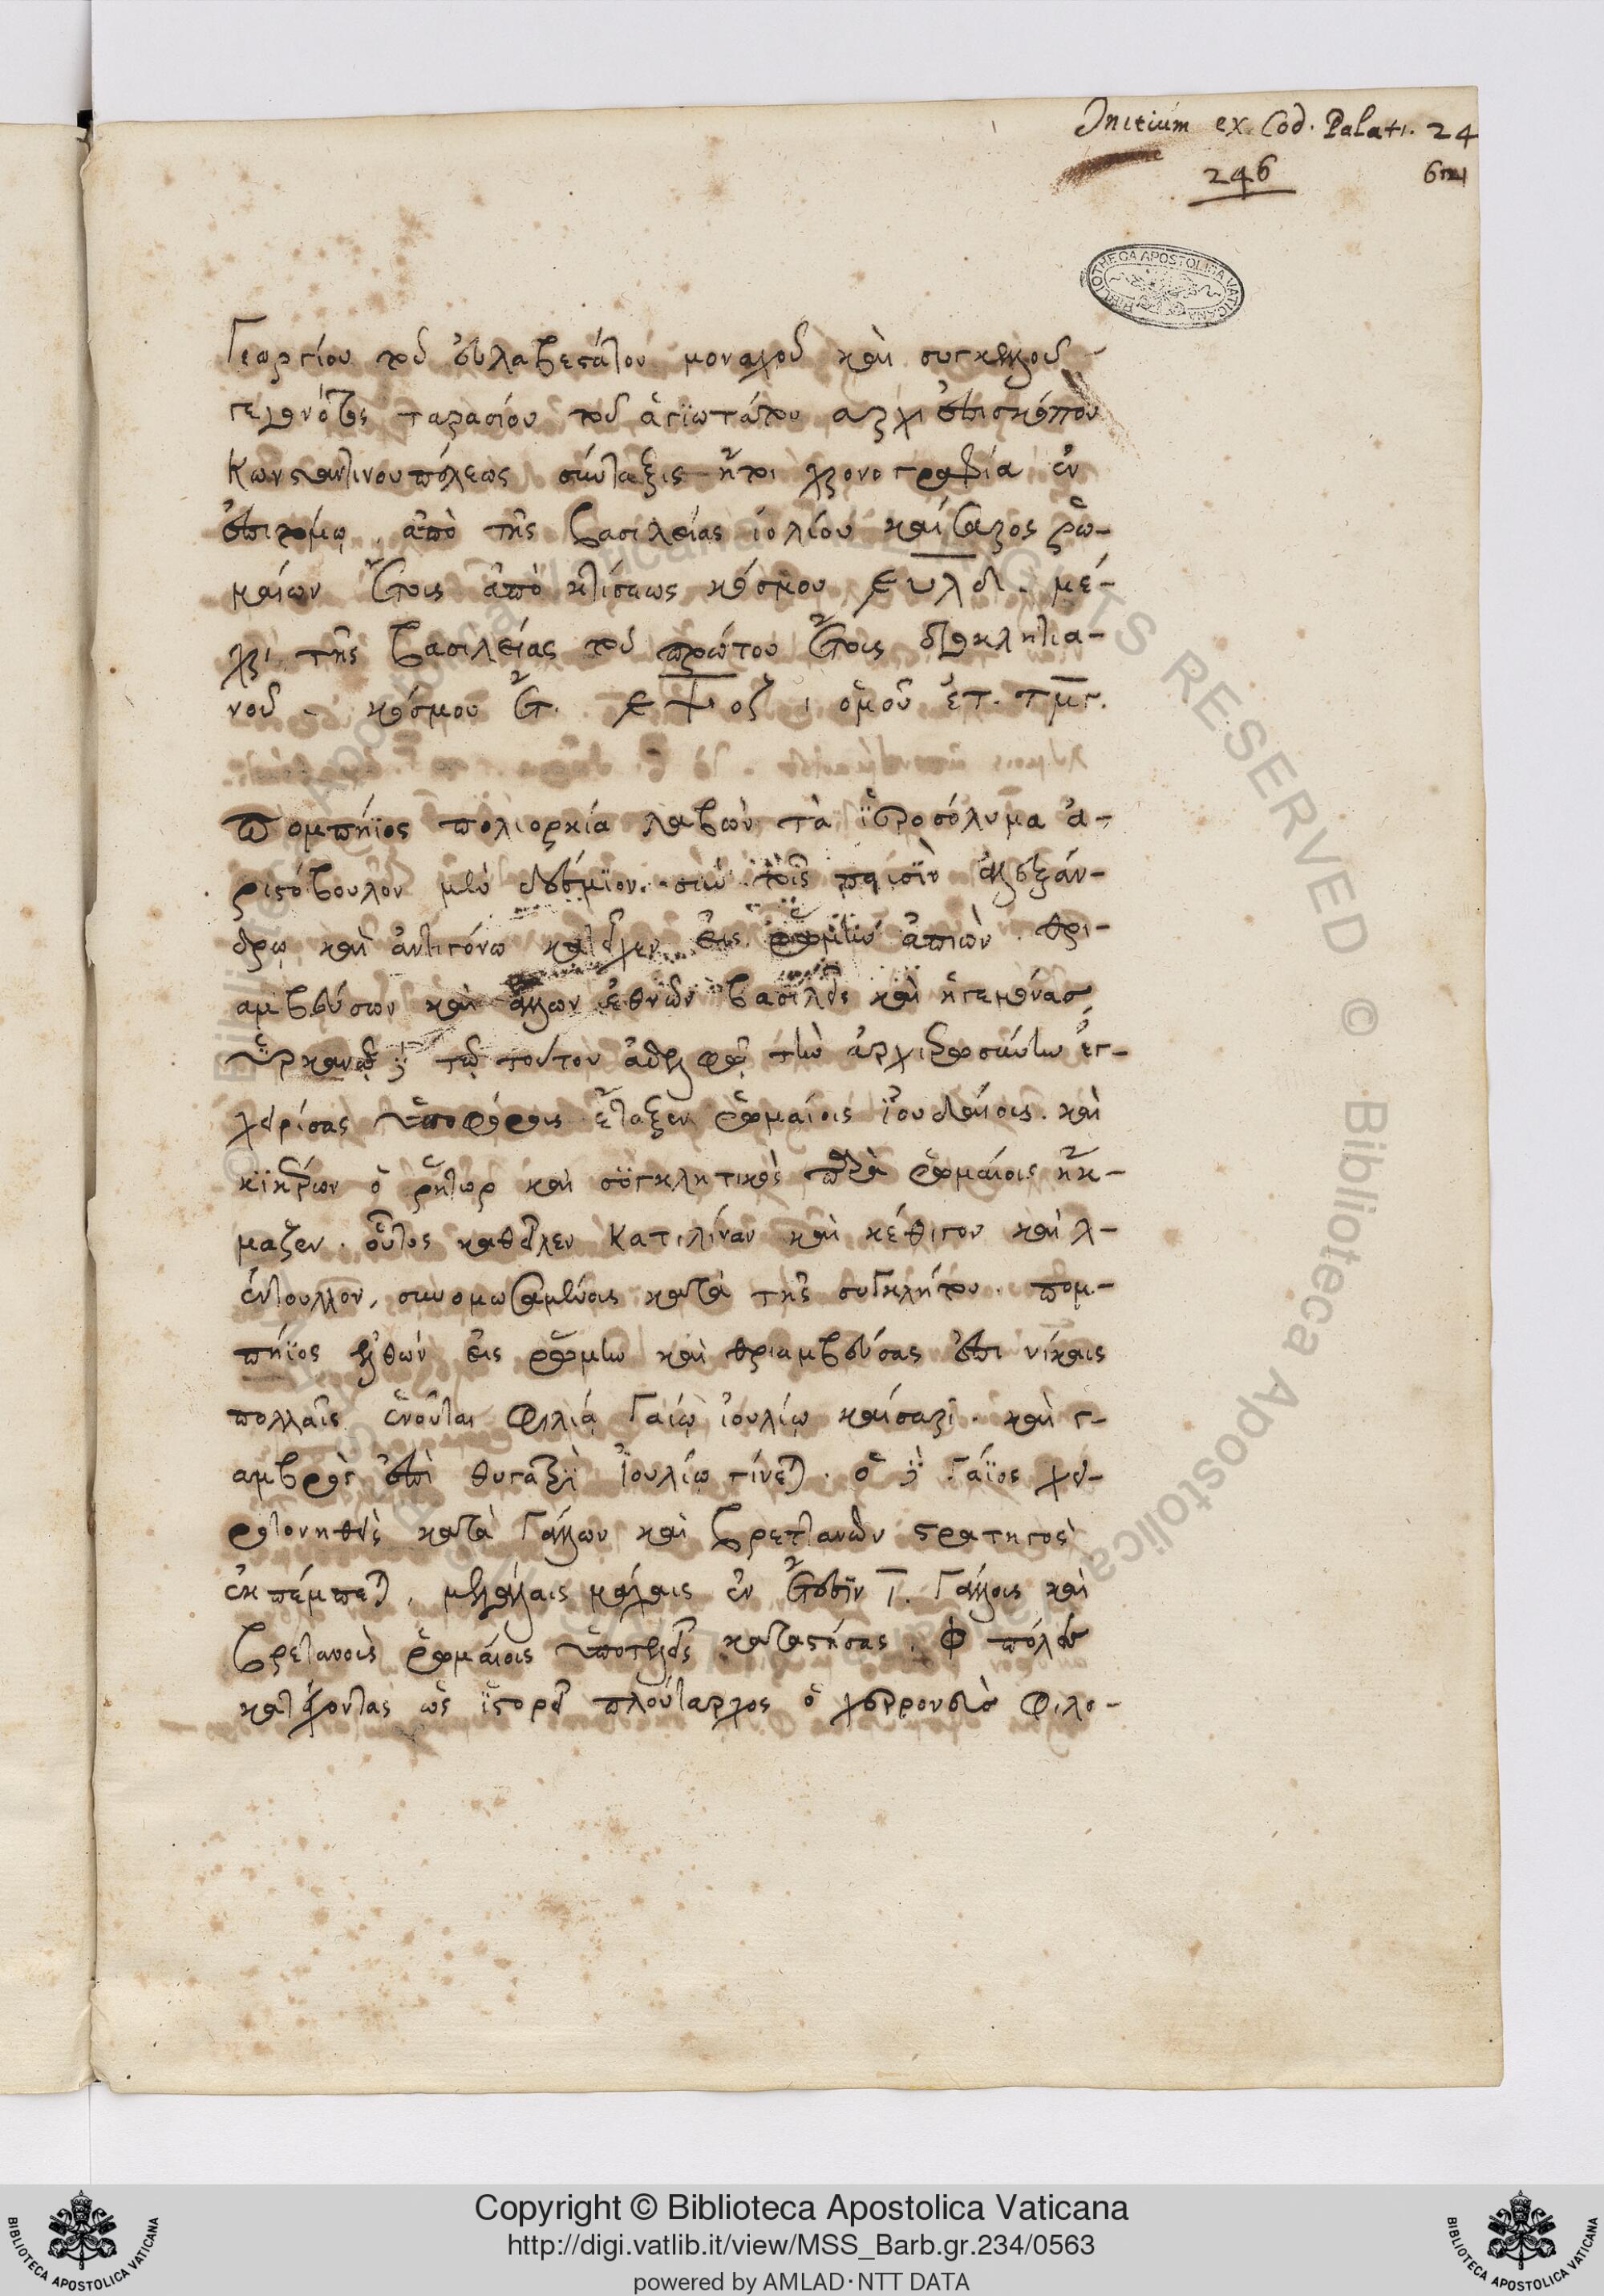 Initium ex Cod. Palati. 24
246
Γεωργίου τοῦ εὐλαβεστάτου μοναχοῦ καὶ συγκέλλου
γεγονότος ταρασίου τοῦ ἁγϊωτάτου αρχιεπισκόπου
Κωνσταντινουπόλεως σύνταξις ἤτοι χρονογραφία ἐν
ἐπιτόμῳ, ἀπὸ τῆς βασιλείας ἰολίου καίσαρος ῥω-
μαίων ἔτους ἀπὸ κτίσεως κόσμου ευλδ. μέ-
χρι τῆς βασιλείας τοῦ πρώτου ἔτους διοκλητια-
νοῦ κόσμου ἔτ. εψοζ, ὁμοῦ ἔτ. τμγ.
Πομπήϊος πολιορκία λαβὼν τὰ ἱεροσόλυμα ἀ-
ριστόβουλον μὲν δέσμϊον σὺν τοῖς παισὶν ἀλεξάν-
δρῳ καὶ ἀντιγόνω κατεῖχεν εἰς ῥώμην ἀπιὼν θρι-
αμβεύσων καὶ ἄλλων ἐθνῶν βασιλεῖς καὶ ἡγεμόνας
ὑρκανῷ δὲ τῷ τούτου ἀδελφῷ τὴν ἀρχιερωσύνην ἐγ-
χειρίσας ὑποφόρους ἔταξεν ῥωμαίοις ἰουδαίους. καὶ
κϊκέρων ὁ ῥήτωρ καὶ σύγκλητικὸς παρὰ ῥωμαίοις ἤκ-
μαζεν. οὗτος καθεῖλεν κατιλίναν καὶ κέθιγον καὶ λ-
έντουλλον, συνομωσαμένους κατὰ τῆς συγκλήτου. πομ-
πήϊος ἐλθὼν εἰς ῥώμην καὶ θριαμβεύσας ἐπι νίκαις
πολλαῖς ἑνοῦται φιλιᾳ Γαίῳ ἰουλίῳ καίσαρι. καὶ γ-
αμβρὸς ἐπὶ θυγατρὶ ἰουλίῳ γίνεται. ὁ δὲ Γάϊος χει-
ροτονηθεὶς κατὰ Γάλλων καὶ βρεττανῶν στρατηγὸς
ἐκπέμπεται, μεγάλαις μάχαις ἐν ἔτεσϊν ῑ. Γάλλοις καὶ
βρετανοὺς ῥωμαίοις ὑποτελεῖς καταστήσας, φ πόλεις
κατέχοντας ὡς ἱστορεῖ πλούταρχος ὁ χερρονεὺς φιλο-
Copyright © Biblioteca Apostolica Vaticana
http://digi.vatlib.it/view/MSS_Barb.gr.234/0563
powered by AMLAD·NTT DATA
BIBLIOTECA APOSTOLICA VATICANA
BIBLIOTECA APOSTOLICA VATICANA